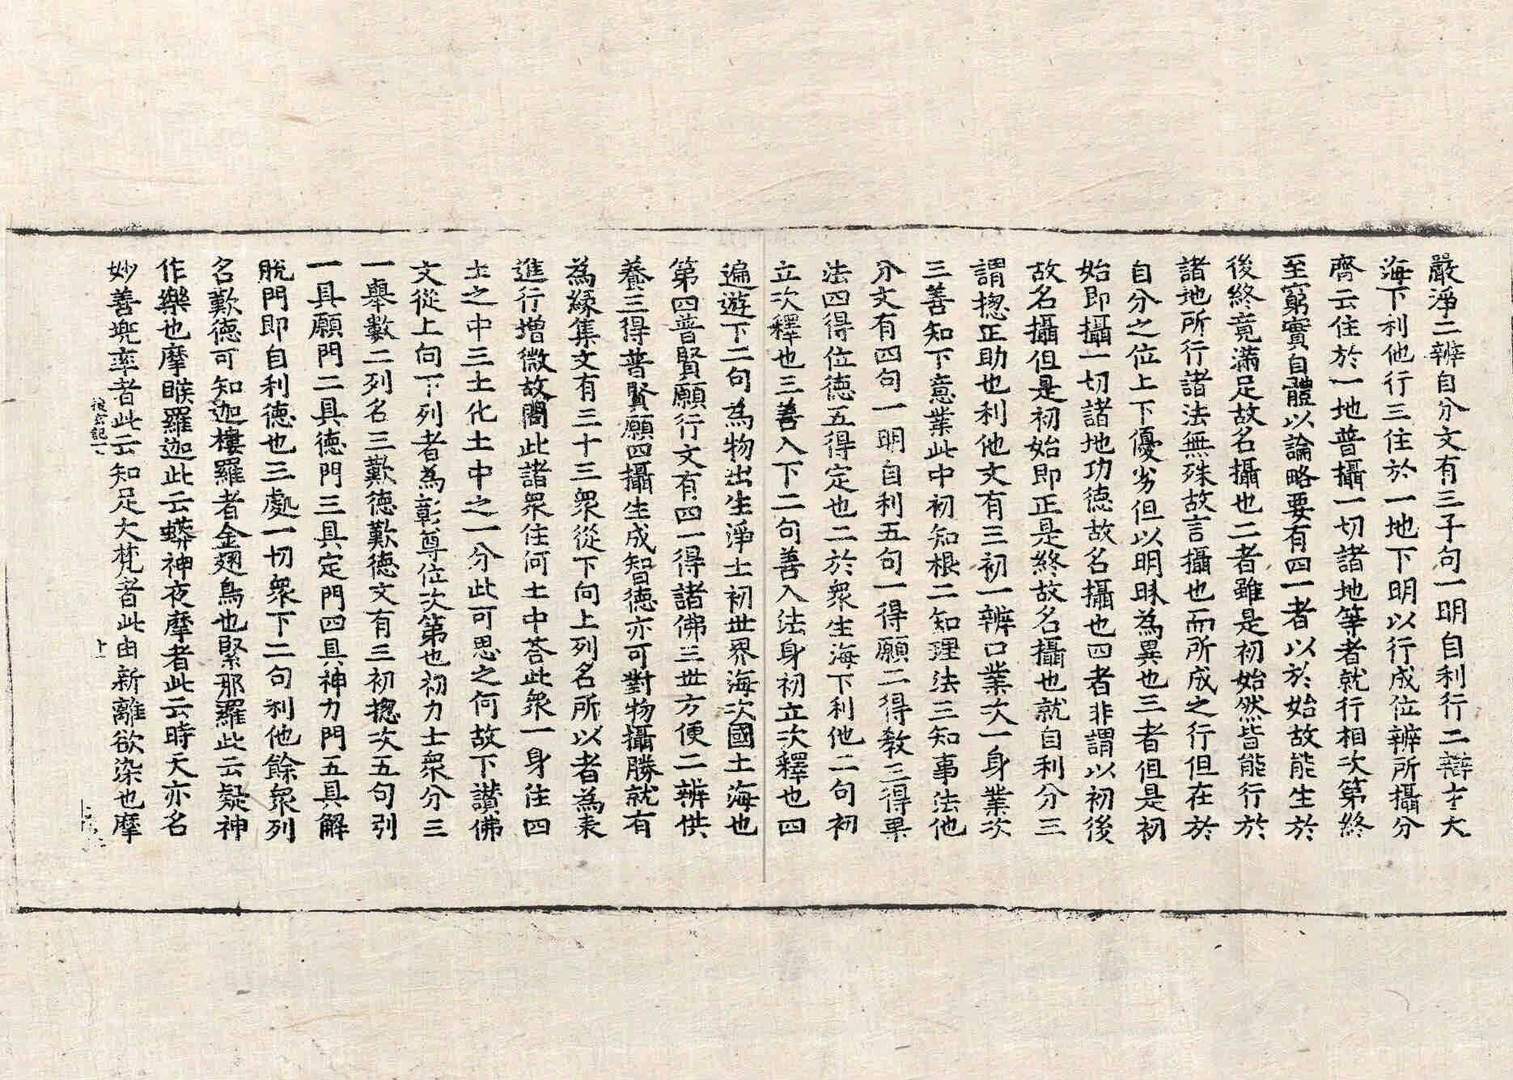 嚴淨二辨自分文有三子句一明自利行二辯大
海下利他行三住於一地下明以行成位辨所攝分
齊云住於一地普攝一切諸地等者就行相次第終
至窮實自體以論略要有四一者以於始故能生於
後終竟滿足故名攝也二者雖是初始然皆能行於
諸地所行諸法無殊故言攝也而所成之行但在於
自分之位上下優劣但以明昧為異也三者但是初
始即攝一切諸地功德故名攝也四者非謂以初後
故名攝但是初始即正是終故名攝也就自利分三
謂揔正助也利他文有三初一辨口業次一身業次
三善知下意業此中初知根二知理法三知事法他
分文有四句一明自利五句一得願二得教三得果
法四得位德五得定也二於衆生海下利他二句初
立次釋也三善入下二句善入法身初立次釋也四
遍遊下二句為物出生淨土初世界海次國土海也
第四普賢願行文有四一得諸佛三世方便二辨供
養三得普賢願四攝生成智德亦可對物攝勝就有
為緣集文有三十三衆從下向上列名所以者為表
進行增微故閣此諸衆住何土中荅此衆一身住四
土之中三土化土中之一分此可思之何故下讚佛
文從上向下列者為彰尊位次第也初力士衆分三
一舉數二列名三歎德歎德文有三初揔次五句引
一具願門二具德門三具定門四具神力門五具解
脫門即自利德也三處一切衆下二句利他餘衆列
名歎德可知迦樓羅者金翅鳥也緊那羅此云疑神
作樂也摩睺羅迦此云蟒神夜摩者此云時天亦名
妙善兜率者此云知足大梵者此由新離欲染也摩
十一